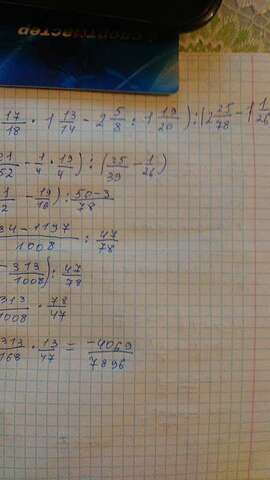 спортмастер
17/18 · 1 13/14 - 2 5/8 : 1 19/20) : (2 25/78 - 1 1/26
21/52 - 1/4 · 19/4) : (25/39 - 1/26)
1/2 - 19/16) : 50-3/78
84-1197/1008 : 47/78
- 313/1008) : 47/78
313/1008 · 78/47
313/168 · 13/47 = -4069/7896